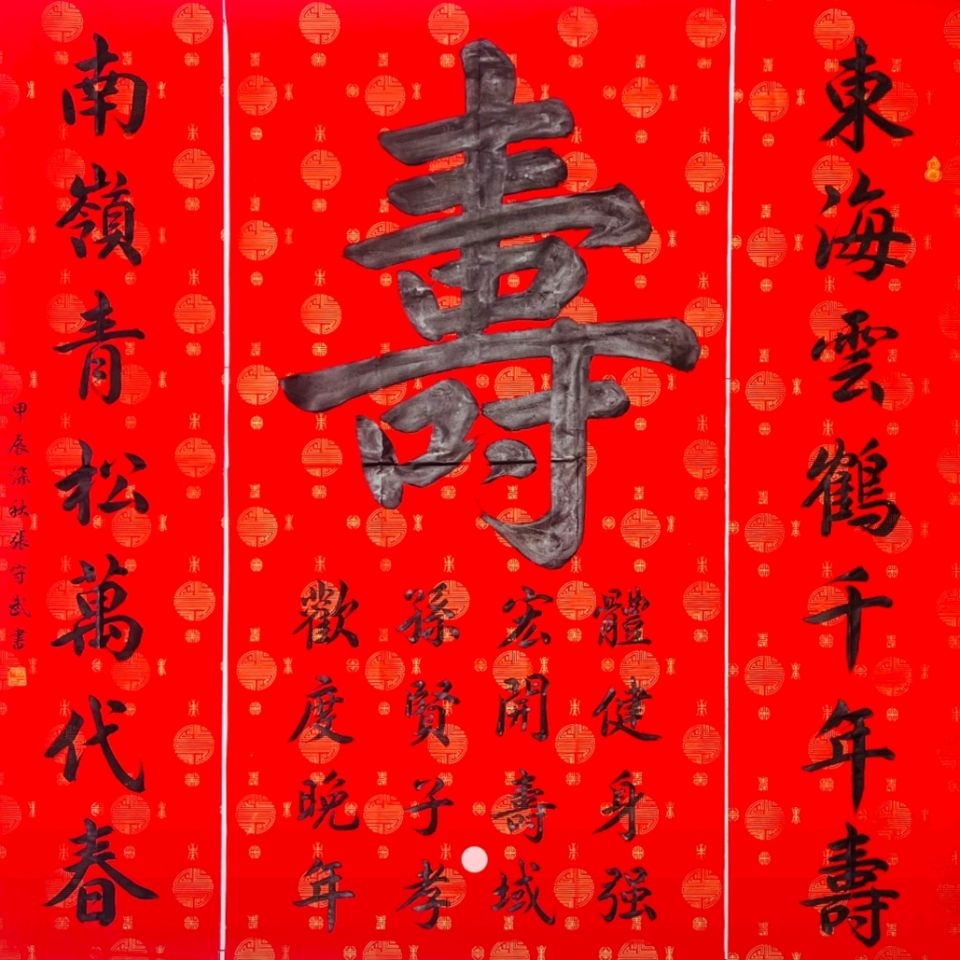 東海雲鶴千年壽
壽
體健身强
宏開壽域
孫賢子孝
歡度晚年
南嶺青松萬代春
甲辰深秋張守武書